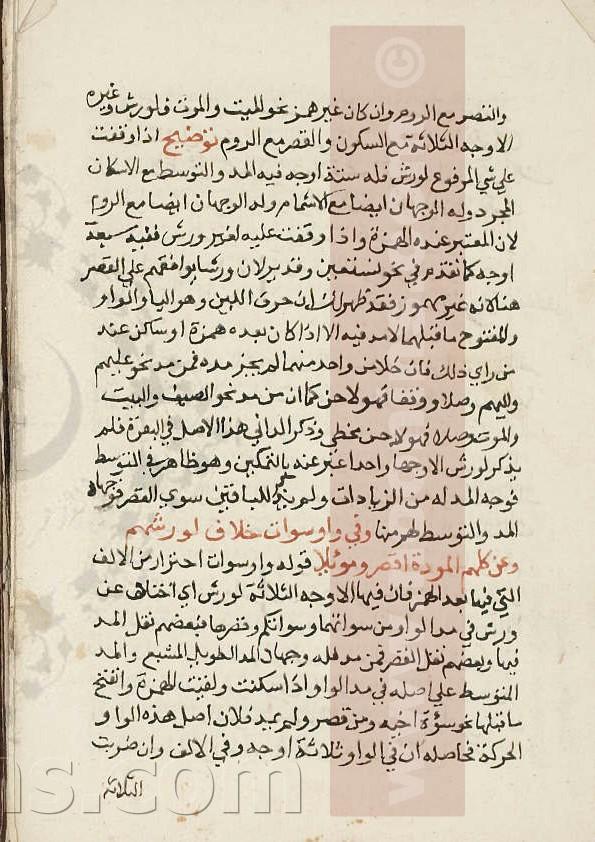 والقصر مع الروم وان كان غير همز نحو الميت والموت فلورش وغيره
الاوجه الثلاثة مع السكون والقصر مع الروم توضيح اذا وقفت
علي شي المرفوع لورش فله ستة اوجه فيه المد والتوسط مع الاسكان
المجرد وله الوجهان ايضا مع الاشمام وله الوجهان ايضا مع الروم
لان المعتبر عنده الهمزة واذا وقفت عليه لغير ورش ففيه سبعة
اوجه كما تقدم في نحو نستعين وقدير لان ورشا يوافقهم علي القصر
هنا لانه غير مهموز فقد ظهر لك ان حرف اللين وهو اليا والواو
والمفتوح ما قبلهما لا مد فيه الا اذا كان بعده همزة او ساكن عند
من راي ذلك فان خلا من واحد منهما لم يجز مده فمن مد نحو عليهم
واليهم وصلا ووقفا فهو لاحن كما ان من مد نحو الصيف والبيت
والموت وصلا فهو لاحن مخطي وذكر الداني هذا الاصل في البقرة فلم
يذكر لورش الا وجها واحدا عبر عنه بالتمكين وهو ظاهر في التوسط
فوجه المد له من الزيادات ولم يذكر للباقين سوي القصر فوجها
المد والتوسط لهم منها وفي واو سوات خلاف لورشهم
وعن كلهم الموودة اقصر وموئلا قوله واو سوات احتراز من الالف
التي فيها بعد الهمز فان فيها الاوجه الثلاثة لورش اي اختلف عن
ورش في مد الواو من سواتهما وسواتكم وقصرها فبعضهم نقل المد
فيها وبعضهم نقل القصر فمن مد فله وجهان المد الطويل المشبع والمد
المتوسط علي اصله في مد الواو اذا سكنت ولقيت الهمزة وانفتح
ما قبلها نحو سوءة اخيه ومن قصر ولم يمد فلان اصل هذه الواو
الحركة فحاصله ان في الواو ثلاثة اوجه وفي الالف وان ضربت
الثلاثة
ns.com